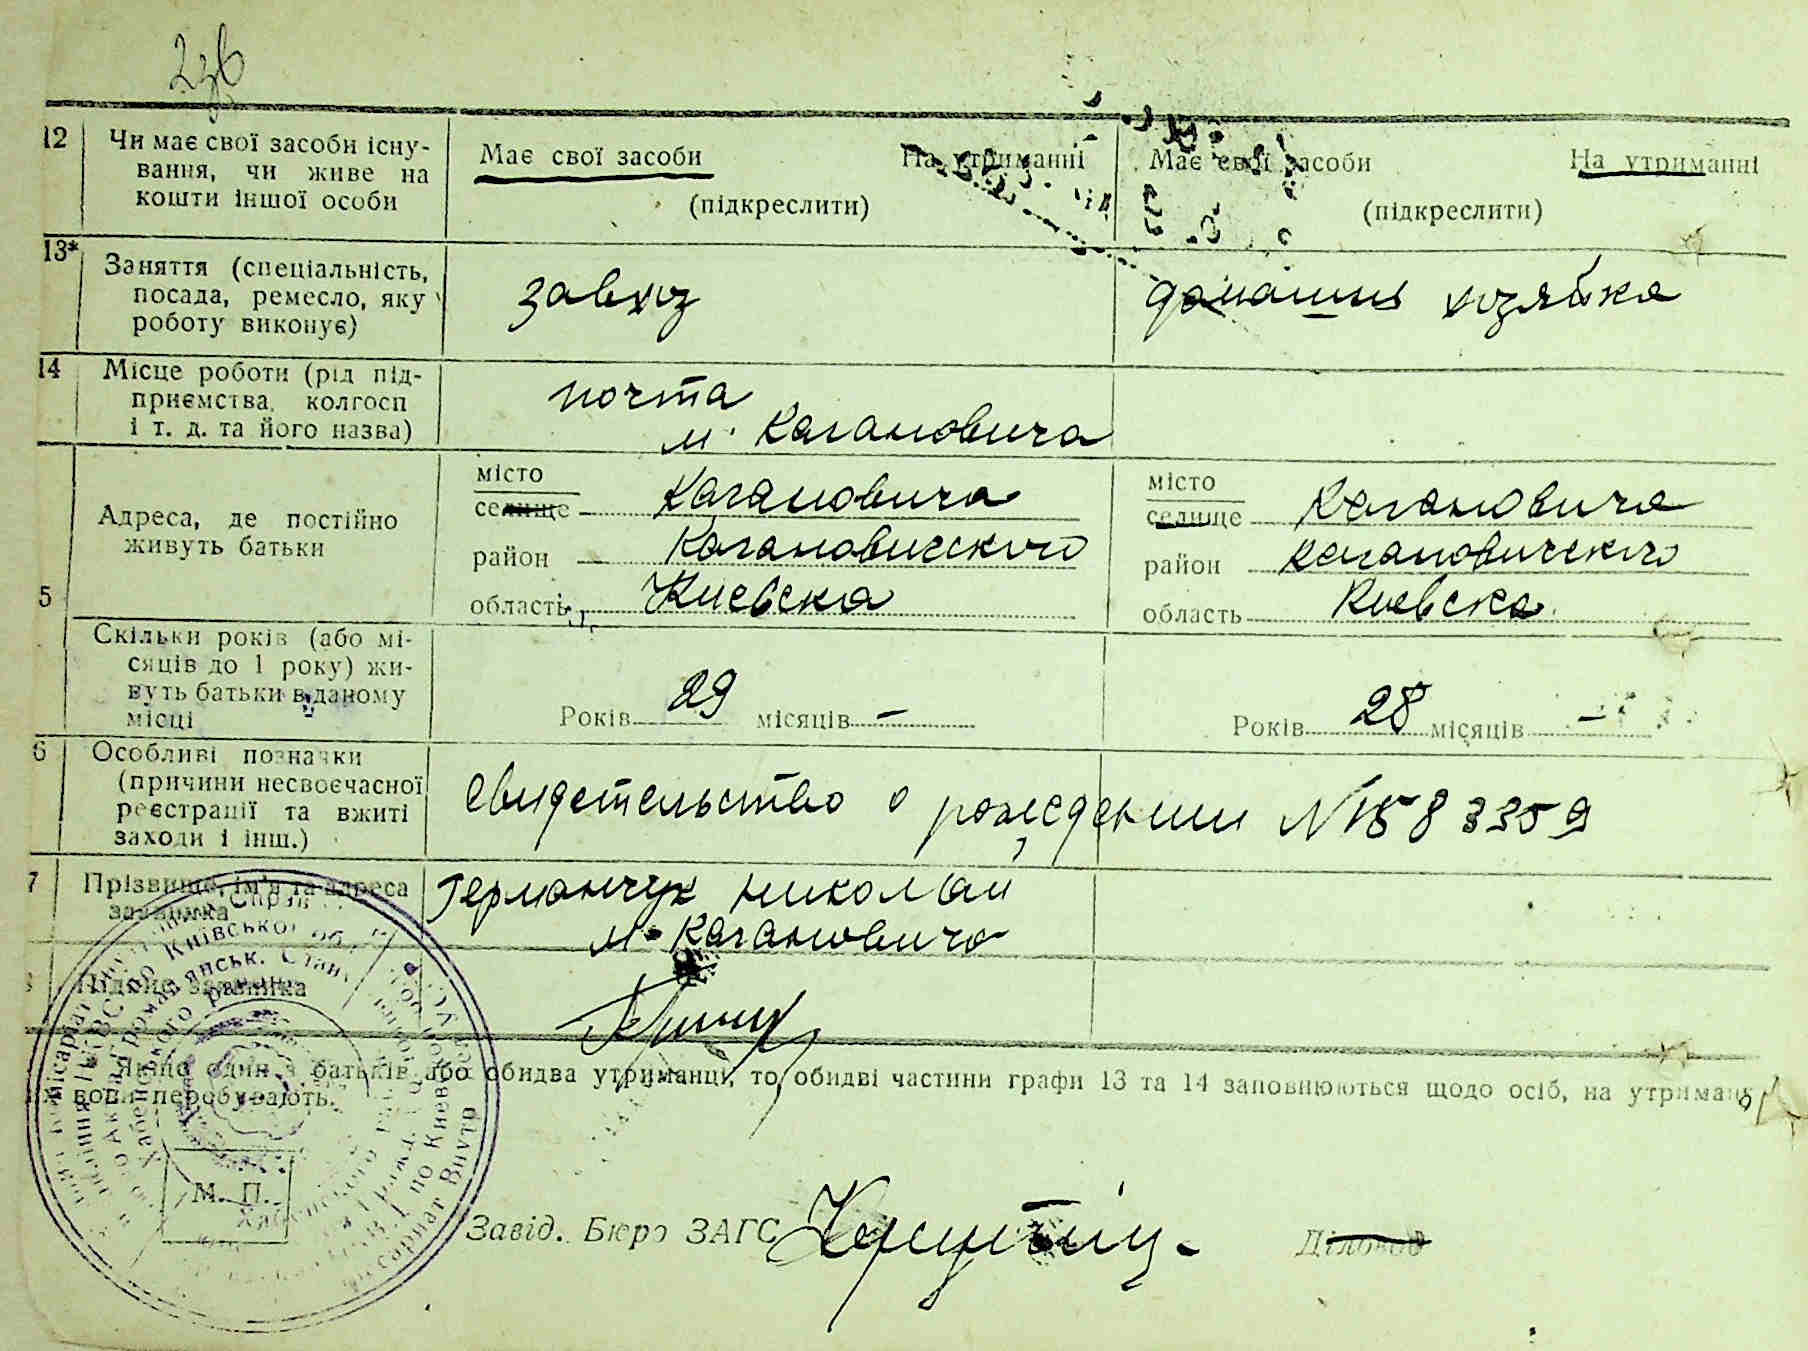 236
12 Чи має свої засоби існу-
вання, чи живе на
кошти іншої особи
Має свої засоби На утриманні
(підкреслити)
Має свої засоби На утриманні
(підкреслити)
13* Заняття (спеціальність,
посада, ремесло, яку
роботу виконує)
завхоз
домашня хозяйка
14 Місце роботи (рід під-
приємства, колгосп
і т. д. та його назва)
почта
м. Кагановича
5 Адреса, де постійно
живуть батьки
місто
селище Кагановича
район Кагановичского
область Киевска
місто
селище Кагановича
район Кагановичского
область Киевска
Скільки років (або мі-
сяців до 1 року) жи-
вуть батьки в даному
місці
Років 29 місяців —
Років 28 місяців —
6 Особливі позначки
(причини несвоєчасної
реєстрації та вжиті
заходи і інш.)
свидетельство о рождении N 1583359
7 Прізвище, ім'я та адреса
заявника
Германчук Николай
м. Кагановича
Підпис заявника
Якщо один з батьків або обидва утриманці, то обидві частини графи 13 та 14 заповнюються щодо осіб, на утриман
вони перебувають.
М. П.
Завід. Бюро ЗАГС
Діловод